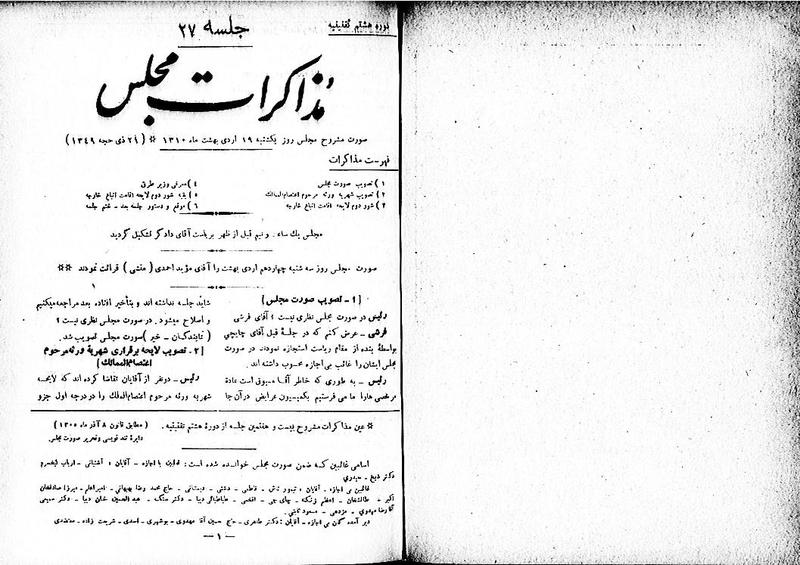 دوره هشتم تقنینیه
جلسه ۲۷
مذاکرات مجلس
صورت مشروح مجلس روز یکشنبه ۱۹ اردی بهشت ماه ۱۳۱۰ * (۲۱ ذی حجه ۱۳۴۹)
فهرست مذاکرات
۱) تصویب صورت مجلس
۲) تصویب شهریه ورثه مرحوم اعتصام‌الممالک
۳) شور دوم لایحه اقامت اتباع خارجه
۴) معرفی وزیر طرق
۵) بقیه شور دوم لایحه اقامت اتباع خارجه
۶) موقع و دستور جلسه بعد ـ ختم جلسه
مجلس یك ساعت و نیم قبل از ظهر بریاست آقای دادگر تشکیل گردید
صورت مجلس روز سه شنبه چهاردهم اردی بهشت را آقای مؤید احمدی (منشی) قرائت نمودند **
[۱ ـ تصویب صورت مجلس]
رئیس ـ در صورت مجلس نظری نیست؟ آقای فرشی
فرشی ـ عرض کنم که در جلسۀ قبل آقای چایچی
بواسطۀ بنده از مقام ریاست استجازه نمودند در صورت
مجلس ایشان را غائب بی اجازه محسوب داشته اند.
رئیس ـ به طوری که خاطر آقا مسبوق است عادة
مرخصی هارا ما می فرستیم بکمیسیون عرایض در آن جا
شاید جلسه نداشته اند و بتأخیر افتاده بعد مراجعه میکنیم
و اصلاح میشود. در صورت مجلس نظری نیست؟
(نمایندگان ـ خیر) صورت مجلس تصویب شد.
[۲ ـ تصویب لایحه برقراری شهریۀ ورثه مرحوم
اعتصام‌الممالك]
رئیس ـ دونفر از آقایان تقاضا کرده اند که لایحه
شهریه ورثه مرحوم اعتصام‌الملك را در درجه اول جزو
* عین مذاکرات مشروح بیست و هفتمین جلسه از دورۀ هشتم تقنینیه. (مطابق قانون ۸ آذر ماه ۱۳۰۵)
دایرۀ تند نویسی و تحریر صورت مجلس
اسامی غائبین که ضمن صورت مجلس خوانده شده است: غائبین با اجازه ـ آقایان: آشتیانی ـ ارباب کیخسرو
دکتر شیخ ـ
غائبین بی اجازه ـ آقایان: تیمور تاش ـ فاطمی ـ دشتی ـ دبستانی ـ حاج محمد رضا بهبهانی ـ امیر اعلم ـ میرزا صادقخان
اکبر ـ طالشخان ـ اعظم زنگنه ـ چای چی ـ افخمی ـ طباطبائی دیبا ـ دکتر سنگ ـ عبدالحسین خان دیبا ـ دکتر سمیعی
آقا رضا مهدوی ـ مسعود ثابتی.
دیر آمده گان بی اجازه ـ آقایان: دکتر طاهری ـ حاج حسین آقا مهدوی ـ بوشهری ـ اسدی ـ شریعت زاده ـ معتضدی
ـ ۱ ـ